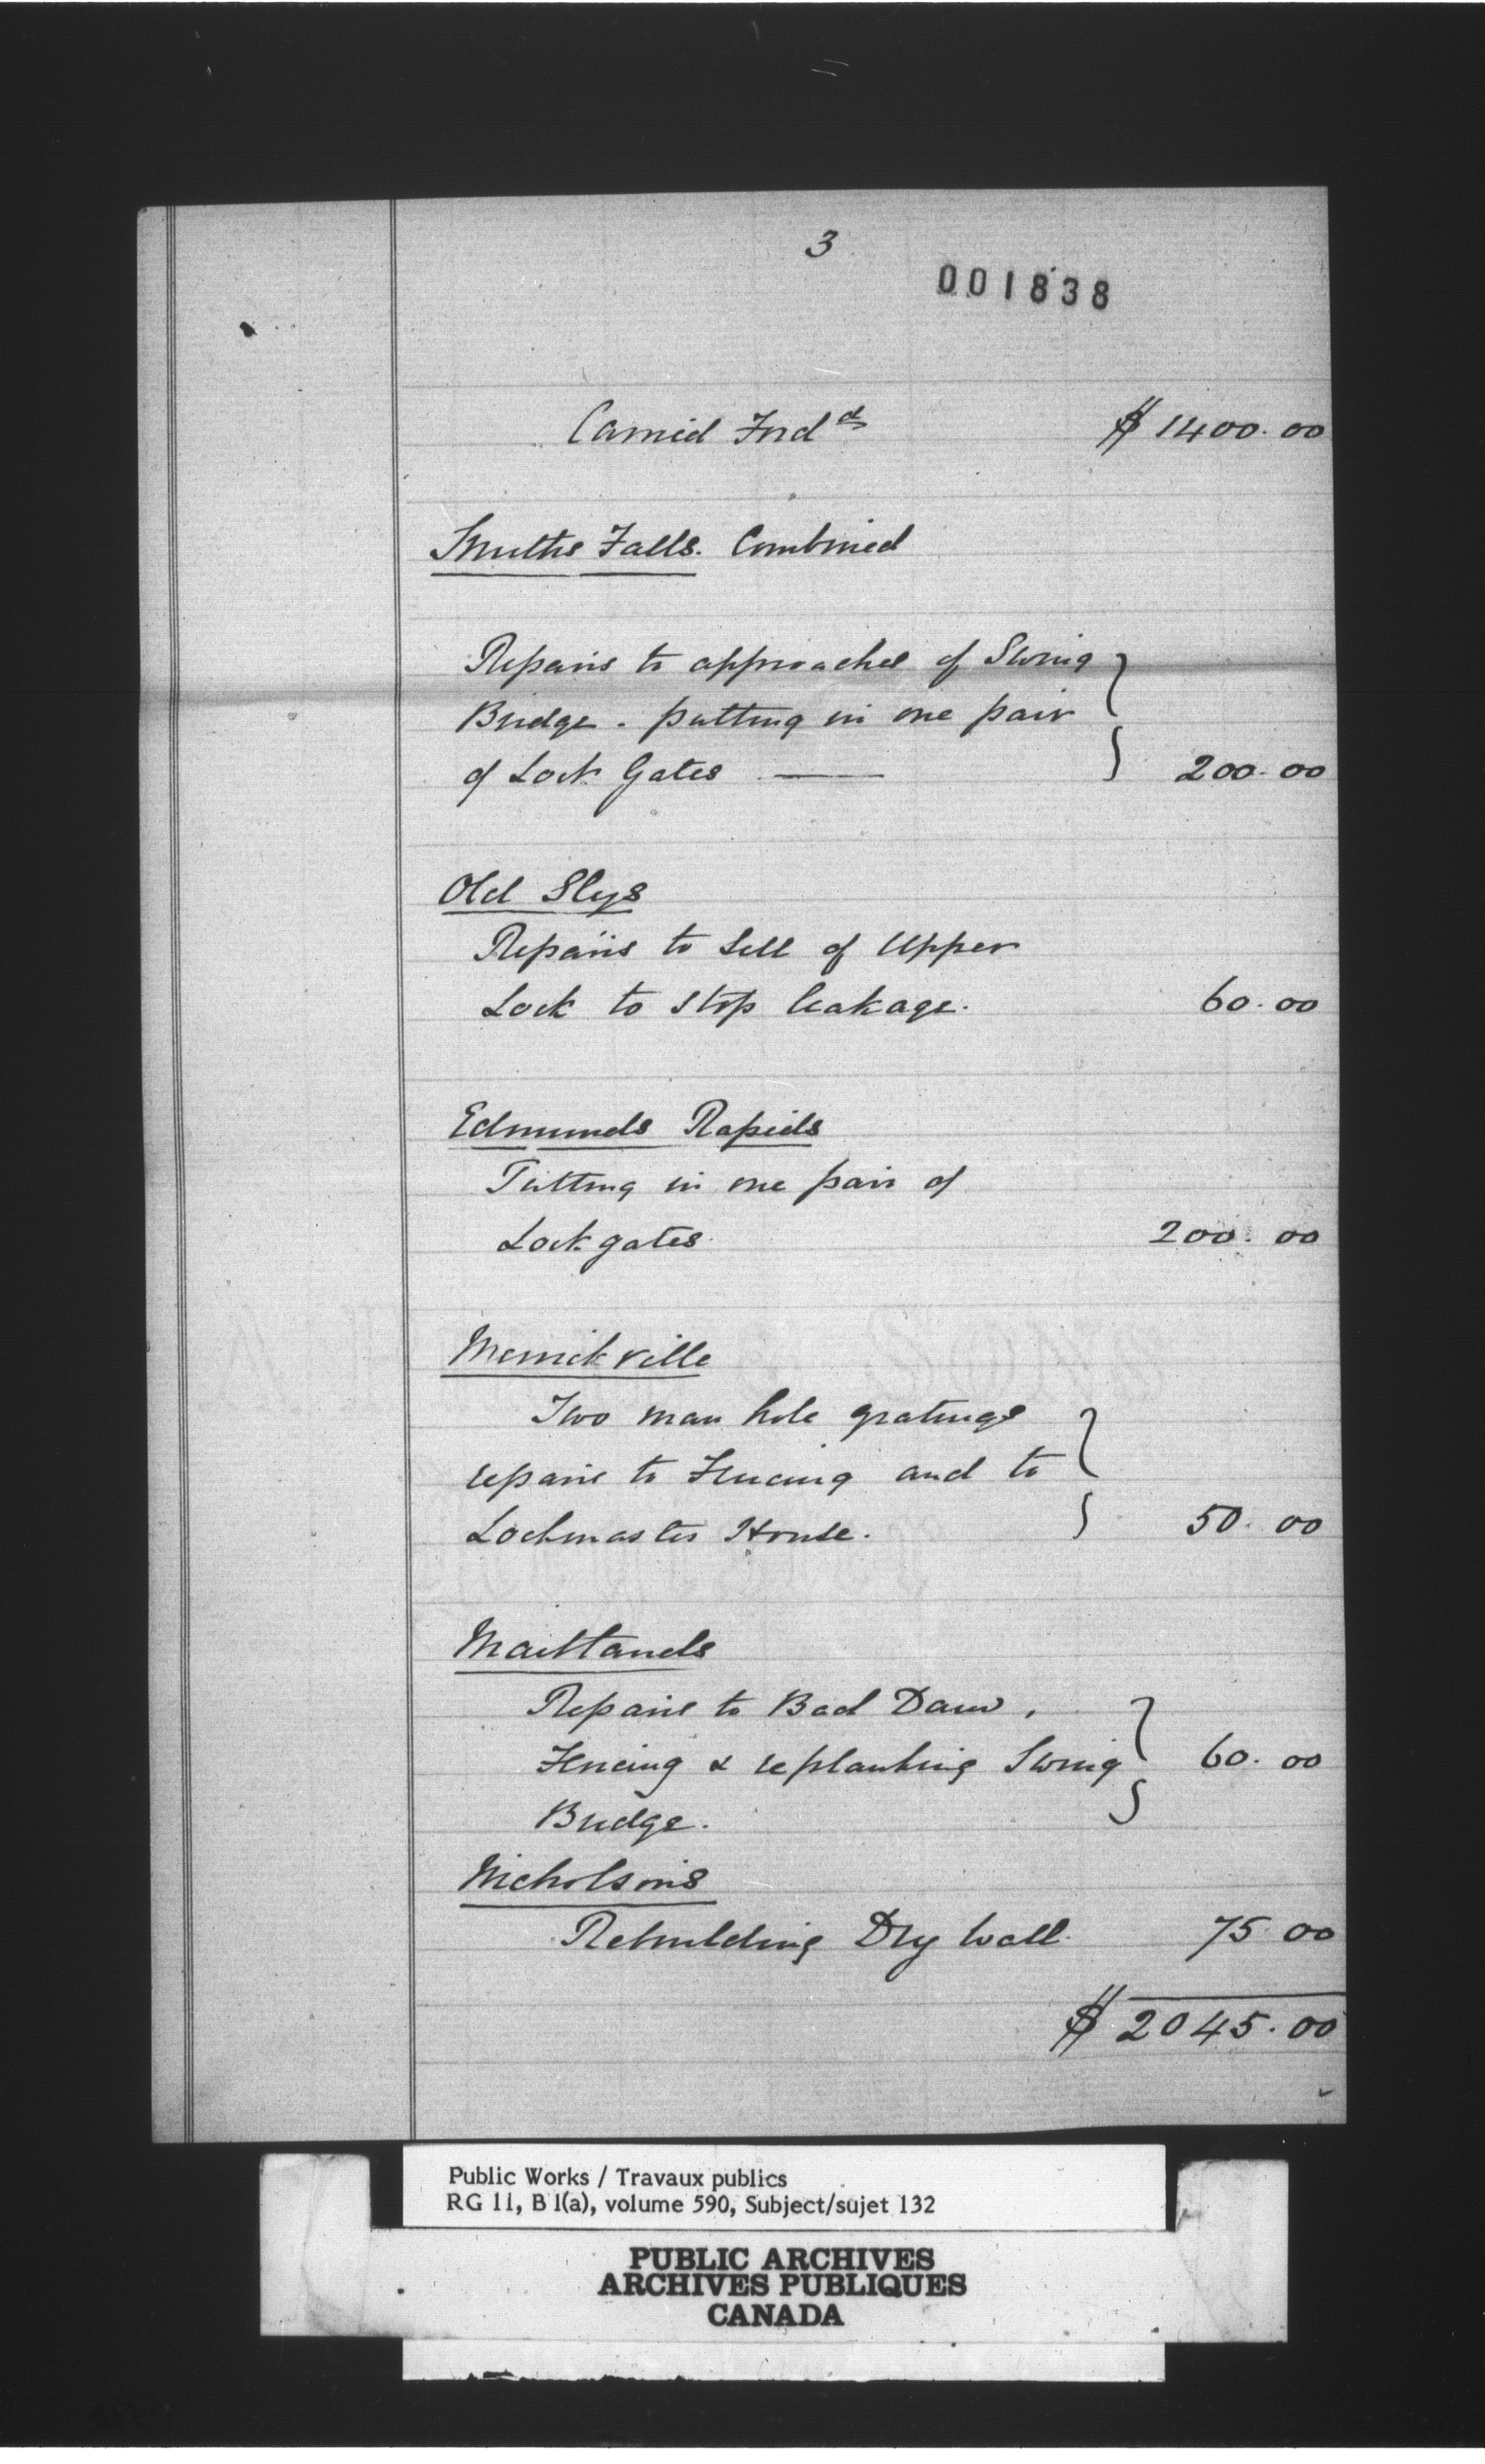 3
001838
Carried Forwd $1400.00
Smiths Falls. Combined
Repairs to approaches of Swing
Bridge. putting in one pair
of Lock Gates — 200.00
Old Slys
Repairs to Sill of Upper
Lock to stop leakage. 60.00
Edmunds Rapids
Putting in one pair of
Lock gates 200.00
Merrickville
Two man hole gratings
repairs to Fencing and to
Lockmasters House. 50.00
Maitlands
Repairs to Bad Dam,
Fencing & replanking Swing 60.00
Bridge.
Nicholsons
Rebuilding Dry Wall. 75.00
$2045.00
Public Works / Travaux publics
RG 11, B 1(a), volume 590, Subject/sujet 132
PUBLIC ARCHIVES
ARCHIVES PUBLIQUES
CANADA